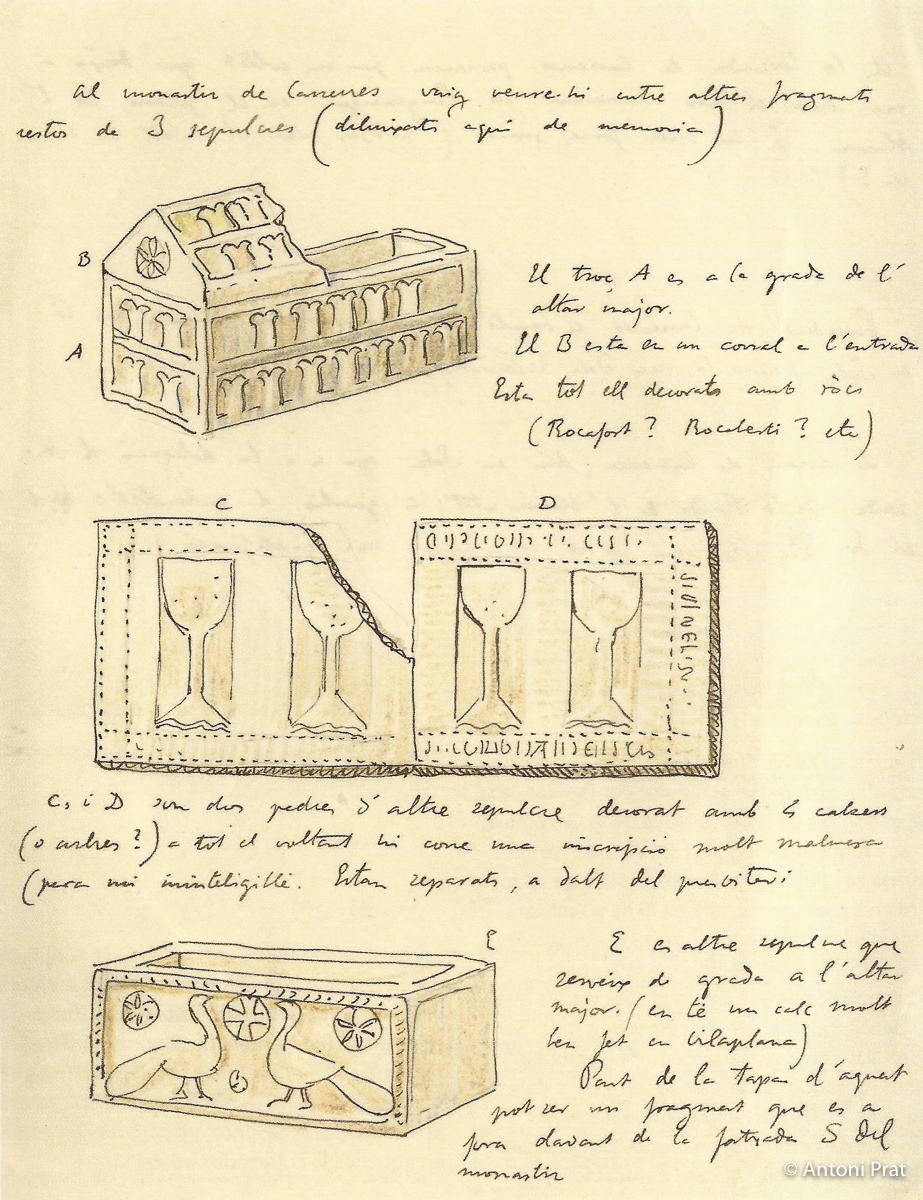 Al monastir de Casserres vaig veure-hi entre altres fragments
restos de 3 sepulcres (dibuixats aquí de memoria)
B
A
El troç A es a la grada de l'
altar major.
El B esta en un corral a l'entrada
Esta tot ell decorats amb ròcs
(Rocafort? Rocabertí? etc)
C
D
C, i D son dos pedres d'altre sepulcre decorat amb 4 calzers
(o arbres?) a tot el voltant hi corre una inscripció molt malmesa
(pera mi inintelligible. Estan separats, a dalt del presbiteri
E
E es altre sepulcre que
serveix de grada a l'altar
major. (en té un calc molt
ben fet en Vilaplana)
Part de la tapa d'aquest
pot ser un fragment que es a
fora davant de la portada S del
monastir
© Antoni Prat